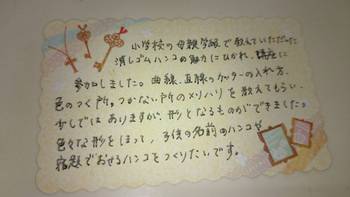 小学校の母親学級で教えていただいた
消しゴムハンコの魅力にひかれ、講座に
参加しました。曲線、直線のカッターの入れ方、
色のつく所、つかない所のメリハリを教えてもらい、
少しではありますが、形となるものができました。
色々な形をほって、子供の名前のハンコや
宿題でおせるハンコをつくりたいです。